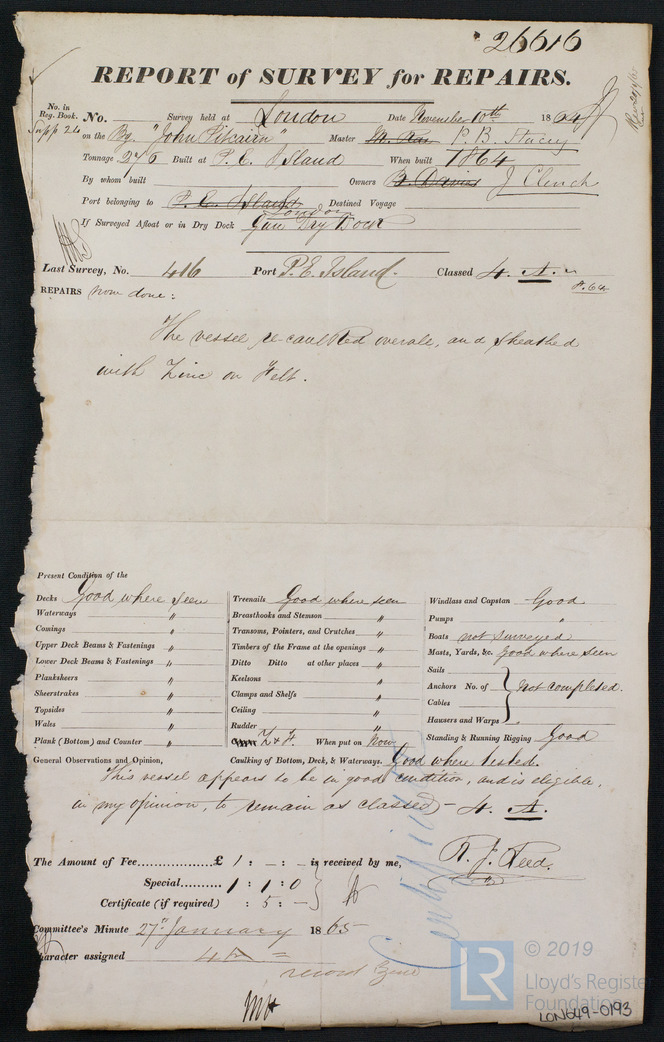 26616
REPORT of SURVEY for REPAIRS.
No. in Reg. Book. No. Survey held at London Date November 10th 1864
Supp 24 on the Bg. "John Pitcairn" Master P. B. Stacey
Tonnage 276 Built at P. E. Island When built 1864
By whom built Owners B. Davies J Clench
Port belonging to P. Ed. Island London Destined Voyage
If Surveyed Afloat or in Dry Dock Gun Dry Dock
Last Survey, No. 416 Port P. E. Island. Classed 4. A.
8.64
REPAIRS now done:
The vessel re-caulked overall, and sheathed
with Zinc on Felt.
Present Condition of the
Decks Good where seen
Waterways "
Comings "
Upper Deck Beams & Fastenings "
Lower Deck Beams & Fastenings "
Planksheers "
Sheerstrakes "
Topsides "
Wales "
Plank (Bottom) and Counter "
Treenails Good where seen
Breasthooks and Stemson "
Transoms, Pointers, and Crutches "
Timbers of the Frame at the openings "
Ditto Ditto at other places "
Keelsons "
Clamps and Shelfs "
Ceiling "
Rudder "
Z & F. When put on Now
Windlass and Capstan Good
Pumps "
Boats not surveyed
Masts, Yards, &c. good where seen
Sails
Anchors No. of } not completed.
Cables
Hausers and Warps
Standing & Running Rigging Good
Caulking of Bottom, Deck, & Waterways. Good where tested.
General Observations and Opinion,
This vessel appears to be in good condition, and is eligible,
in my opinion, to remain as classed - 4. A.
The Amount of Fee £ 1 : — : — is received by me,
Special 1 : 1 : 0
Certificate (if required) : 5 : —
Committee's Minute 27th January 1865
Character assigned 4A
record Zinc
LR
© 2019
Lloyd's Register
Foundation
LON649-0193